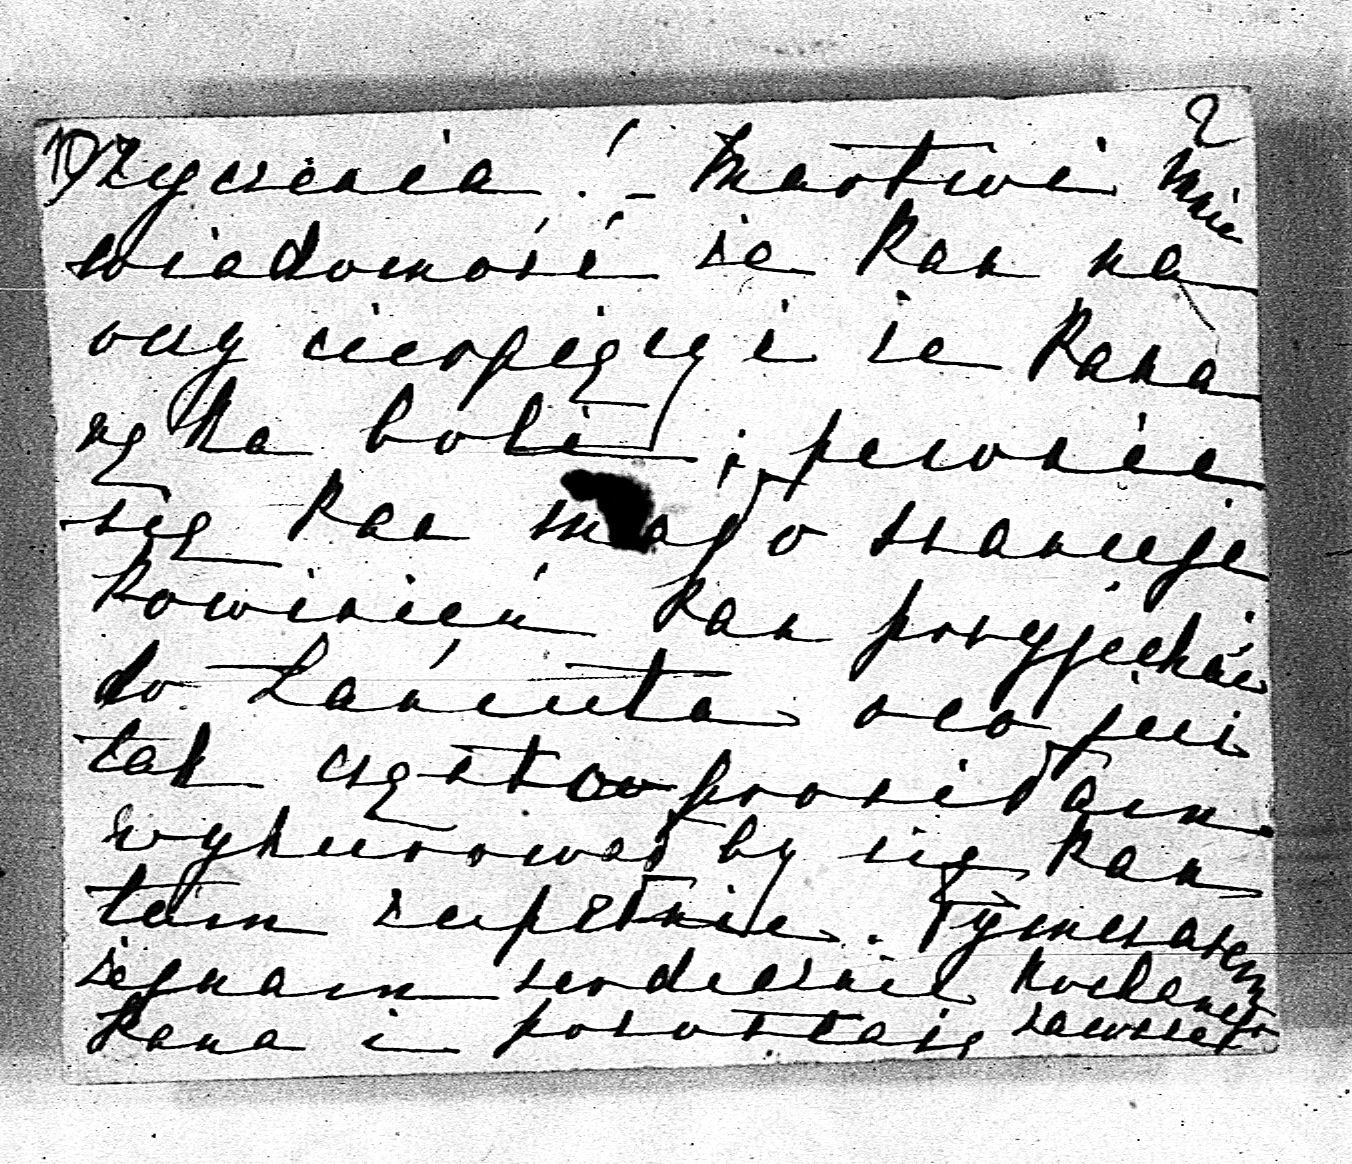 2
życzenia! – Martwi mnie
wiadomość że Pan na
oczy cierpiący i że Pana
ręka boli; pewnie
się Pan mało szanuje
Powinien Pan przyjechać
do Łańcuta oco już
tak często prosiłam.
wykurował by się Pan
tam zupełnie. Tymczasem
żegnam serdecznie kochanego
Pana i pozostaję zawsze